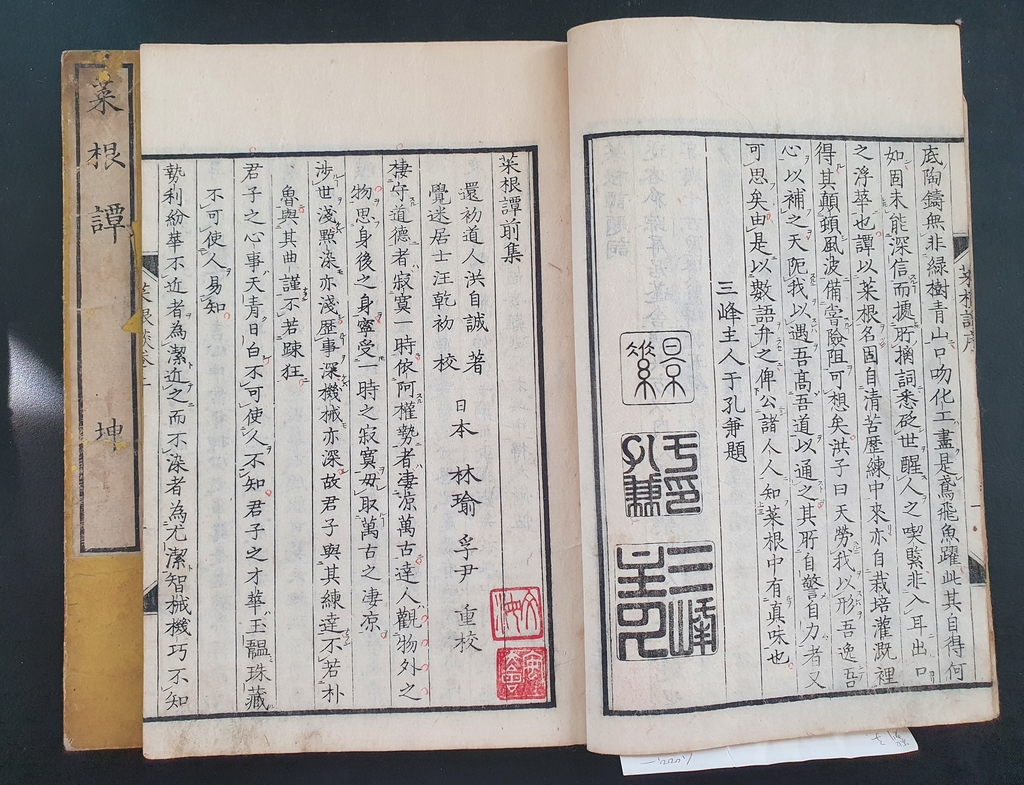 底陶鑄無非綠樹青山口吻化工盡是鳶飛魚躍此其自得何
如固未能深信而據所擒詞悉砭世醒人之喫緊非入耳出口
之浮華也譚以菜根名固自清苦歷練中來亦自栽培灌溉裡
得其顛頓風波備嘗險阻可想矣洪子曰天勞我以形吾逸吾
心以補之天阨我以遇吾高吾道以通之其所自警自力者又
可思矣由是以數語弁之俾公諸人人知菜根中有真味也
三峰主人于孔兼題
于孔兼印
三峰主人
菜根譚前集
還初道人洪自誠 著
覺迷居士汪乾初 校
日本 林瑜 孚尹 重校
棲守道德者寂寞一時依阿權勢者凄涼萬古達人觀物外之
物思身後之身寧受一時之寂寞毋取萬古之凄凉
涉世淺點染亦淺歷事深機械亦深故君子與其練達不若朴
魯與其曲謹不若踈狂
君子之心事天青日白不可使人不知君子之才華玉韞珠藏
不可使人易知
勢利紛華不近者為潔近之而不染者為尤潔智械機巧不知
菜根譚 坤